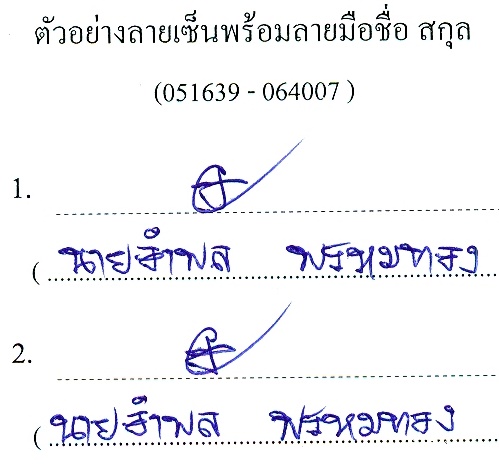 ตัวอย่างลายเซ็นพร้อมลายมือชื่อ สกุล
(051639 - 064007 )
1.
( นายอำพล พรหมทอง
2.
( นายอำพล พรหมทอง